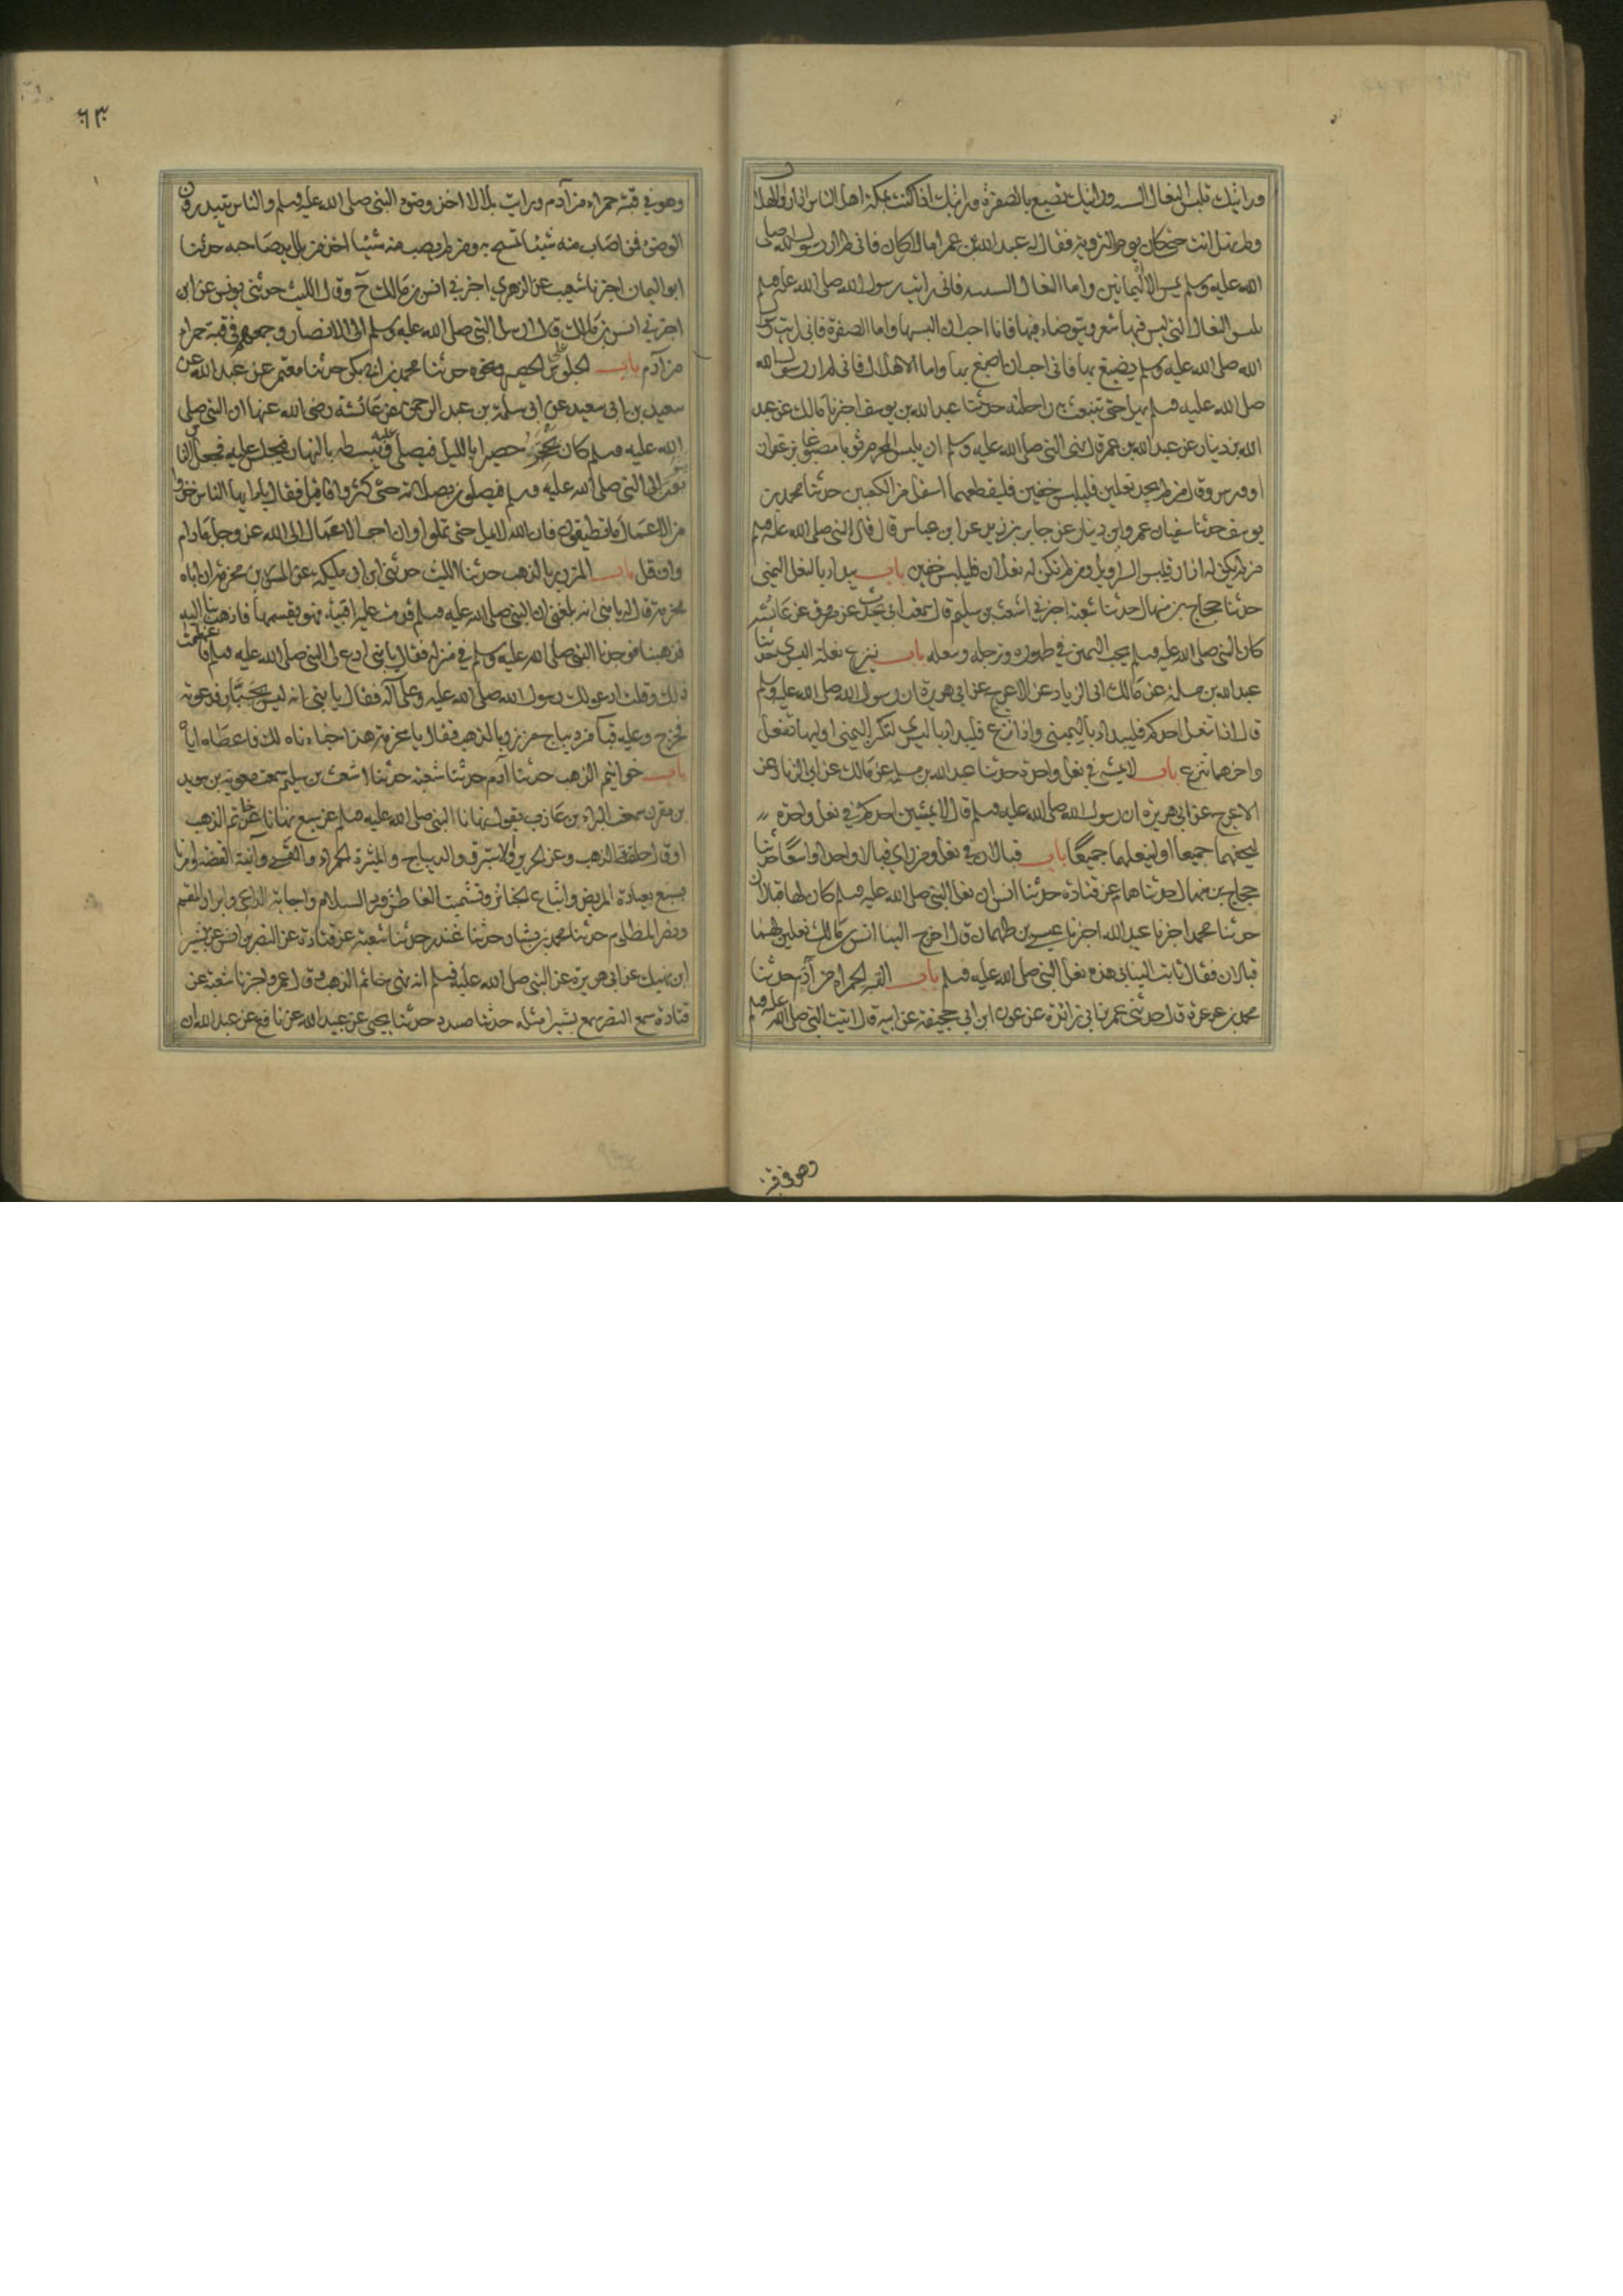 ورايتك تلبس النعال السبتية ورايتك تصبغ بالصفرة ورايتك اذا كنت بمكة اهل الناس اذا راوا الهلال
ولم تهل انت حتى كان يوم التروية فقال له عبد الله بن عمر اما الاركان فاني لم ار رسول الله صلى
الله عليه وسلم يمس الا اليمانيين واما النعال السبتية فاني رايت رسول الله صلى الله عليه وسلم
يلبس النعال التي ليس فيها شعر ويتوضاء فيها فانا احب ان البسها واما الصفرة فاني رايت رسول
الله صلى الله عليه وسلم يصبغ بها فاني احب ان اصبغ بها واما الاهلال فاني لم ار رسول الله
صلى الله عليه وسلم يهل حتى تنبعث به راحلته حدثنا عبد الله بن يوسف اخبرنا مالك عن عبد
الله بن دينار عن عبد الله بن عمر قال نهى النبي صلى الله عليه وسلم ان يلبس المحرم ثوبا مصبوغا بزعفران
او ورس وقال من لم يجد نعلين فليلبس خفين فليقطعهما اسفل من الكعبين حدثنا محمد بن
يوسف حدثنا سفيان عمرو بن دينار عن جابر بن زيد عن ابن عباس قال قال النبي صلى الله عليه وسلم
من لم يكن له ازار فليلبس السراويل ومن لم تكن له نعلان فليلبس خفين باب يبدا بالنعل اليمنى
حدثنا حجاج بن منهال حدثنا شعبة اخبرني اشعث بن سليم قال سمعت ابي يحدث عن مسروق عن عائشة
كان النبي صلى الله عليه وسلم يحب التيمن في طهوره وترجله وتنعله باب ينزع نعله اليسرى حدثنا
عبد الله بن مسلمة عن مالك عن ابي الزناد عن الاعرج عن ابي هريرة ان رسول الله صلى الله عليه وسلم
قال اذا انتعل احدكم فليبدا باليمين واذا انتزع فليبدا باليسرى لتكن اليمنى اولهما تنعل
واخرهما تنزع باب لا يمشي في نعل واحدة حدثنا عبد الله بن مسلمة عن مالك عن ابي الزناد عن
الاعرج عن ابي هريرة ان رسول الله صلى الله عليه وسلم قال لا يمشين احدكم في نعل واحدة
ليحفهما جميعا او لينعلهما جميعا باب قبالان في نعل ومن راى قبالا واحدا واسعا حدثنا
حجاج بن منهال حدثنا همام عن قتادة حدثنا انس ان نعل النبي صلى الله عليه وسلم كان لها قبالان
حدثنا محمد اخبرنا عبد الله اخبرنا عيسى بن طهمان قال اخرج الينا انس بن مالك نعلين لهما
قبالان فقال ثابت البناني هذه نعل النبي صلى الله عليه وسلم باب القبة الحمراء من آدم حدثنا
محمد بن عرعرة قال حدثني عمر بن ابي زائدة عن عون ابن ابي جحيفة عن ابيه قال اتيت النبي صلى الله عليه وسلم
وهو في قبة
٦٣
وهو في قبة حمراء من آدم ورايت بلالا اخذ وضوء النبي صلى الله عليه وسلم والناس يبتدرون
الوضوء فمن اصاب منه شيئا تمسح به ومن لم يصب منه شيئا اخذ من بلل يد صاحبه حدثنا
ابو اليمان اخبرنا شعيب عن الزهري اخبرني انس بن مالك ح وقال الليث حدثني يونس عن ابن
اخبرني انس بن مالك قال ارسل النبي صلى الله عليه وسلم الى الانصار وجمعهم في قبة حمراء
من آدم باب الجلوس على الحصير ونحوه حدثنا محمد بن ابي بكر حدثنا معتمر عن عبد الله عن
سعيد بن ابي سعيد عن ابي سلمة بن عبد الرحمن عن عائشة رضي الله عنها ان النبي صلى
الله عليه وسلم كان يحتجر حصيرا بالليل فيصلي عليه ويبسطه بالنهار فيجلس عليه فجعل الناس
يثوبون الى النبي صلى الله عليه وسلم فيصلون بصلاته حتى كثروا فاقبل فقال يا ايها الناس خذوا
من الاعمال ما تطيقون فان الله لا يمل حتى تملوا وان احب الاعمال الى الله عز وجل ما دام
وان قل باب المزرر بالذهب حدثنا الليث حدثني ابن ابي مليكة عن المسور بن مخرمة ان اباه
مخرمة قال له يا بني انه بلغني ان النبي صلى الله عليه وسلم قدمت عليه اقبية فهو يقسمها فاذهب بنا اليه
فذهبنا فوجدنا النبي صلى الله عليه وسلم في منزله فقال يا بني ادع لي النبي صلى الله عليه وسلم فاعظمت
ذلك وقلت ادعو لك رسول الله صلى الله عليه وعلى آله فقال يا بني انه ليس بجبار فدعوته
فخرج وعليه قبا من ديباج مزرر بالذهب فقال يا مخرمة هذا خباناه لك فاعطاه اياه
باب خواتيم الذهب حدثنا آدم حدثنا شعبة حدثنا اشعث بن سليم سمعت معوية بن سويد
بن مقرن سمعت البراء بن عازب يقول نهانا النبي صلى الله عليه وسلم عن سبع نهانا عن خاتم الذهب
او قال حلقة الذهب وعن الحرير والاستبرق والديباج والميثرة الحمراء والقسي وآنية الفضة وامرنا
بسبع بعيادة المريض واتباع الجنائز وتشميت العاطس ورد السلام واجابة الداعي وابرار المقسم
ونصر المظلوم حدثنا محمد بن بشار حدثنا غندر حدثنا شعبة عن قتادة عن النضر بن انس عن بشير
ابن نهيك عن ابي هريرة عن النبي صلى الله عليه وسلم انه نهى خاتم الذهب وقال عمرو اخبرنا شعبة عن
قتادة سمع النضر سمع بشيرا مثله حدثنا مسدد حدثنا يحيى عن عبيد الله عن نافع عن عبد الله ان